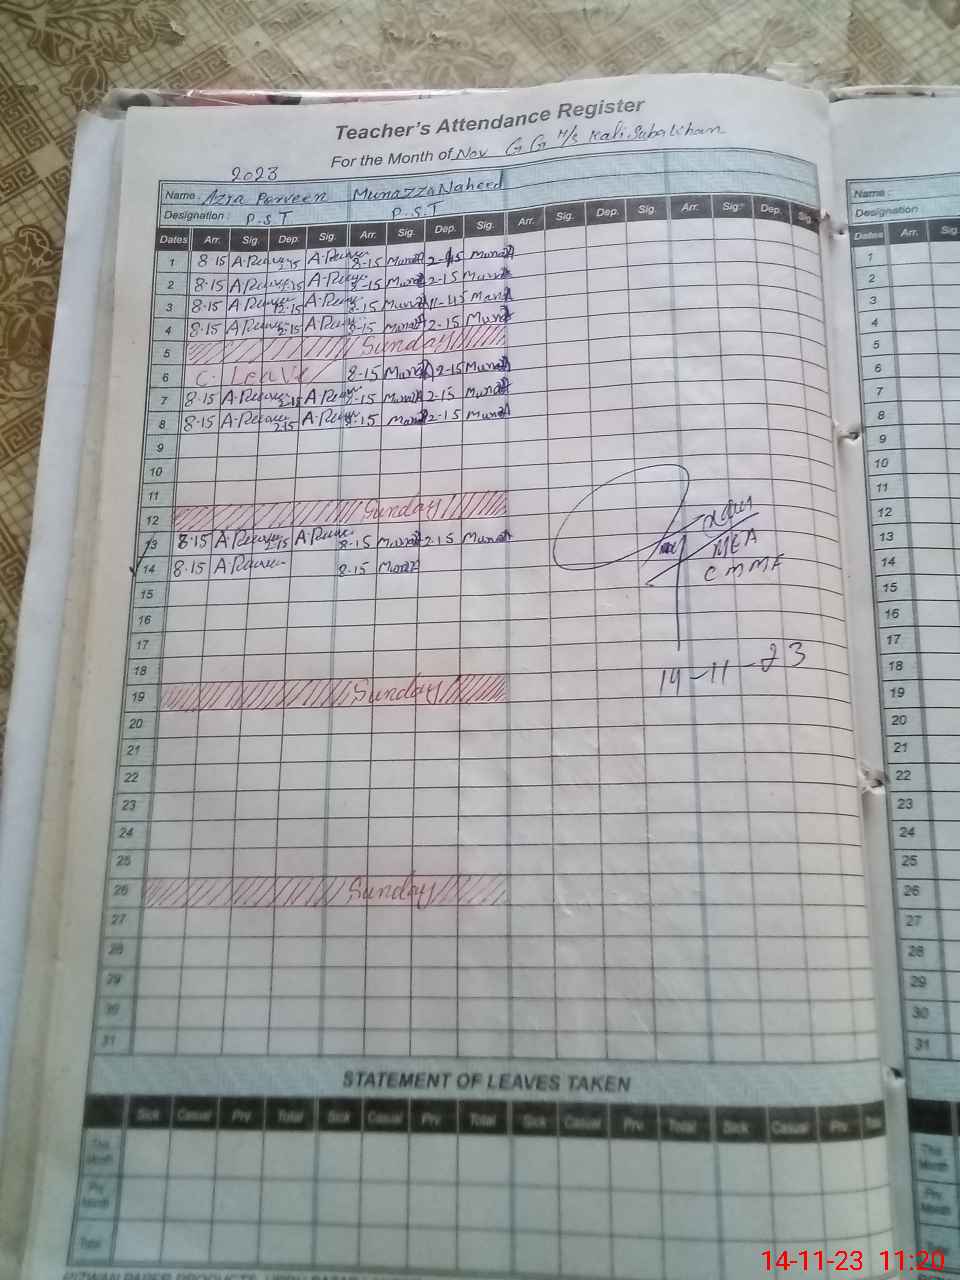 Teacher's Attendance Register
For the Month of Nov G G H/S Kali Suba Khan
2023
Name : Azra Parveen Munazza Naheed
Designation : P.S.T P.S.T
Dates Arr. Sig. Dep. Sig. Arr. Sig. Dep. Sig. Arr. Sig. Dep. Sig. Arr. Sig. Dep. Sig.
1 8-15 2-15 8-15 2-15
2 8-15 2-15
3 8-15 12-15 8-15 11-45
4 8-15 2-15 8-15 2-15
5 Sunday
6 C. Leave 8-15 2-15
7 8-15 2-15 8-15 2-15
8 8-15 2-15 8-15 2-15
9
10
11
12 Sunday
13 8-15 2-15 8-15 2-15
14 8-15 8-15
15
16
17
18
19 Sunday
20
21
22
23
24
25
26 Sunday
27
28
29
30
31
MEA
CMMF
14-11-23
STATEMENT OF LEAVES TAKEN
Sick Casual Prv. Total Sick Casual Prv. Total Sick Casual Prv. Total Sick Casual Prv. Total
This Month
Prv. Month
Total
Name :
Designation
Dates Arr. Sig.
1
2
3
4
5
6
7
8
9
10
11
12
13
14
15
16
17
18
19
20
21
22
23
24
25
26
27
28
29
30
31
This Month
Prv. Month
Total
14-11-23 11:20